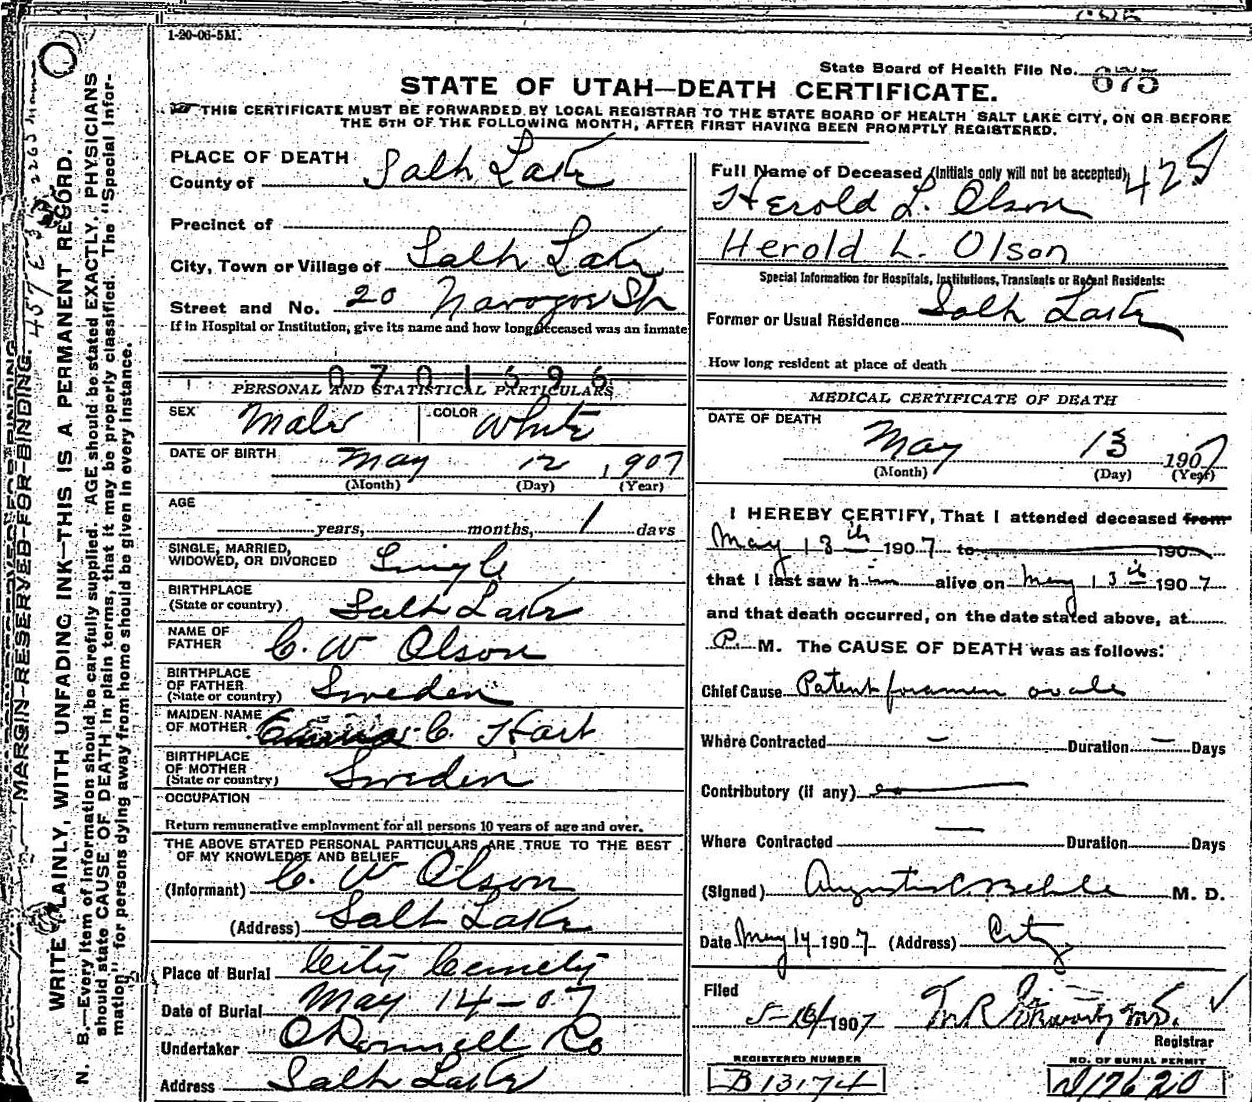 1-20-06-5M.
State Board of Health File No. 675
STATE OF UTAH—DEATH CERTIFICATE.
THIS CERTIFICATE MUST BE FORWARDED BY LOCAL REGISTRAR TO THE STATE BOARD OF HEALTH SALT LAKE CITY, ON OR BEFORE
THE 5TH OF THE FOLLOWING MONTH, AFTER FIRST HAVING BEEN PROMPTLY REGISTERED.
PLACE OF DEATH
County of Salt Lake
Precinct of
City, Town or Village of Salt Lake
Street and No. 20
If in Hospital or Institution, give its name and how long deceased was an inmate
0701596
PERSONAL AND STATISTICAL PARTICULARS
SEX Male COLOR White
DATE OF BIRTH May 12, 1907
(Month) (Day) (Year)
AGE
years, months, 1 days
SINGLE, MARRIED,
WIDOWED, OR DIVORCED Single
BIRTHPLACE
(State or country) Salt Lake
NAME OF
FATHER C. W Olson
BIRTHPLACE
OF FATHER
(State or country) Sweden
MAIDEN NAME
OF MOTHER C. Hart
BIRTHPLACE
OF MOTHER
(State or country) Sweden
OCCUPATION
Return remunerative employment for all persons 10 years of age and over.
THE ABOVE STATED PERSONAL PARTICULARS ARE TRUE TO THE BEST
OF MY KNOWLEDGE AND BELIEF
(Informant) C. W Olson
(Address) Salt Lake
Place of Burial City Cemety
Date of Burial May 14-07
Undertaker O'Donnell Co
Address Salt Lake
Full Name of Deceased (Initials only will not be accepted) 425
Herold L. Olson
Herold L. Olson
Special Information for Hospitals, Institutions, Transients or Recent Residents:
Former or Usual Residence Salt Lake
How long resident at place of death
MEDICAL CERTIFICATE OF DEATH
DATE OF DEATH
May 13 1907
(Month) (Day) (Year)
I HEREBY CERTIFY, That I attended deceased from
May 13th 1907 to 190
that I last saw him alive on May 13th 1907
and that death occurred, on the date stated above, at
P. M. The CAUSE OF DEATH was as follows:
Chief Cause Patent foramen ovale
Where Contracted — Duration — Days
Contributory (if any)
Where Contracted — Duration Days
(Signed) Augustus C Behle M. D.
Date May 14 1907 (Address) City
Filed
5-16/1907
Registrar
REGISTERED NUMBER
B13174
NO. OF BURIAL PERMIT
N17620
MARGIN RESERVED FOR BINDING.
WRITE PLAINLY, WITH UNFADING INK—THIS IS A PERMANENT RECORD.
N. B.—Every item of information should be carefully supplied. AGE should be stated EXACTLY. PHYSICIANS
should state CAUSE OF DEATH in plain terms, that it may be properly classified. The "Special Infor-
mation" for persons dying away from home should be given in every instance.